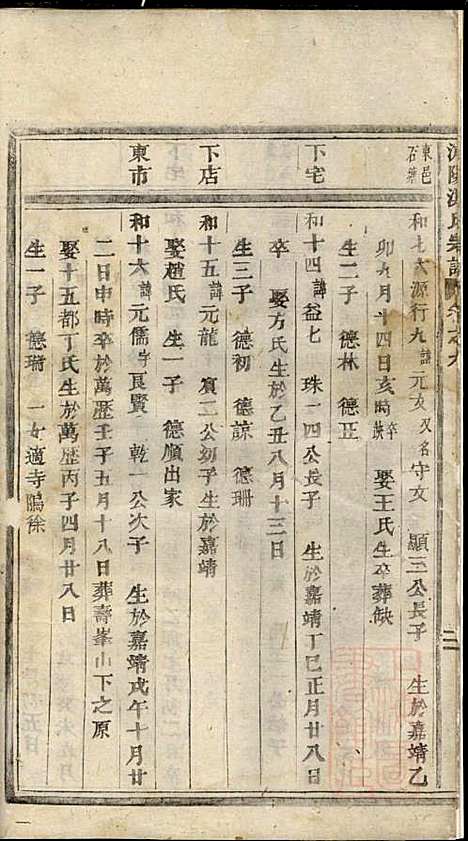 東邑
石
和七大源行九諱元亥又名守文 顯三公長子 生於嘉靖乙
卯九月十四日亥時卒缺 娶王氏生卒葬缺
生二子 德林 德正
下宅
和十四諱益七 珠一四公長子 生於嘉靖丁巳正月廿八日
卒 娶方氏生於乙丑八月十三日
生三子 德初 德諒 德珊
下店
和十五諱元龍 賓二公幼子生於嘉靖
娶趙氏 生一子 德順出家
東市
和十六諱元儒字良賢 乾一公次子 生於嘉靖戊午十月廿
二日申時卒於萬歷壬子五月十八日葬壽峯山下之原
娶十五都丁氏生於萬歷丙子四月廿八日
生一子 德瑞 一女適寺鴈徐
二